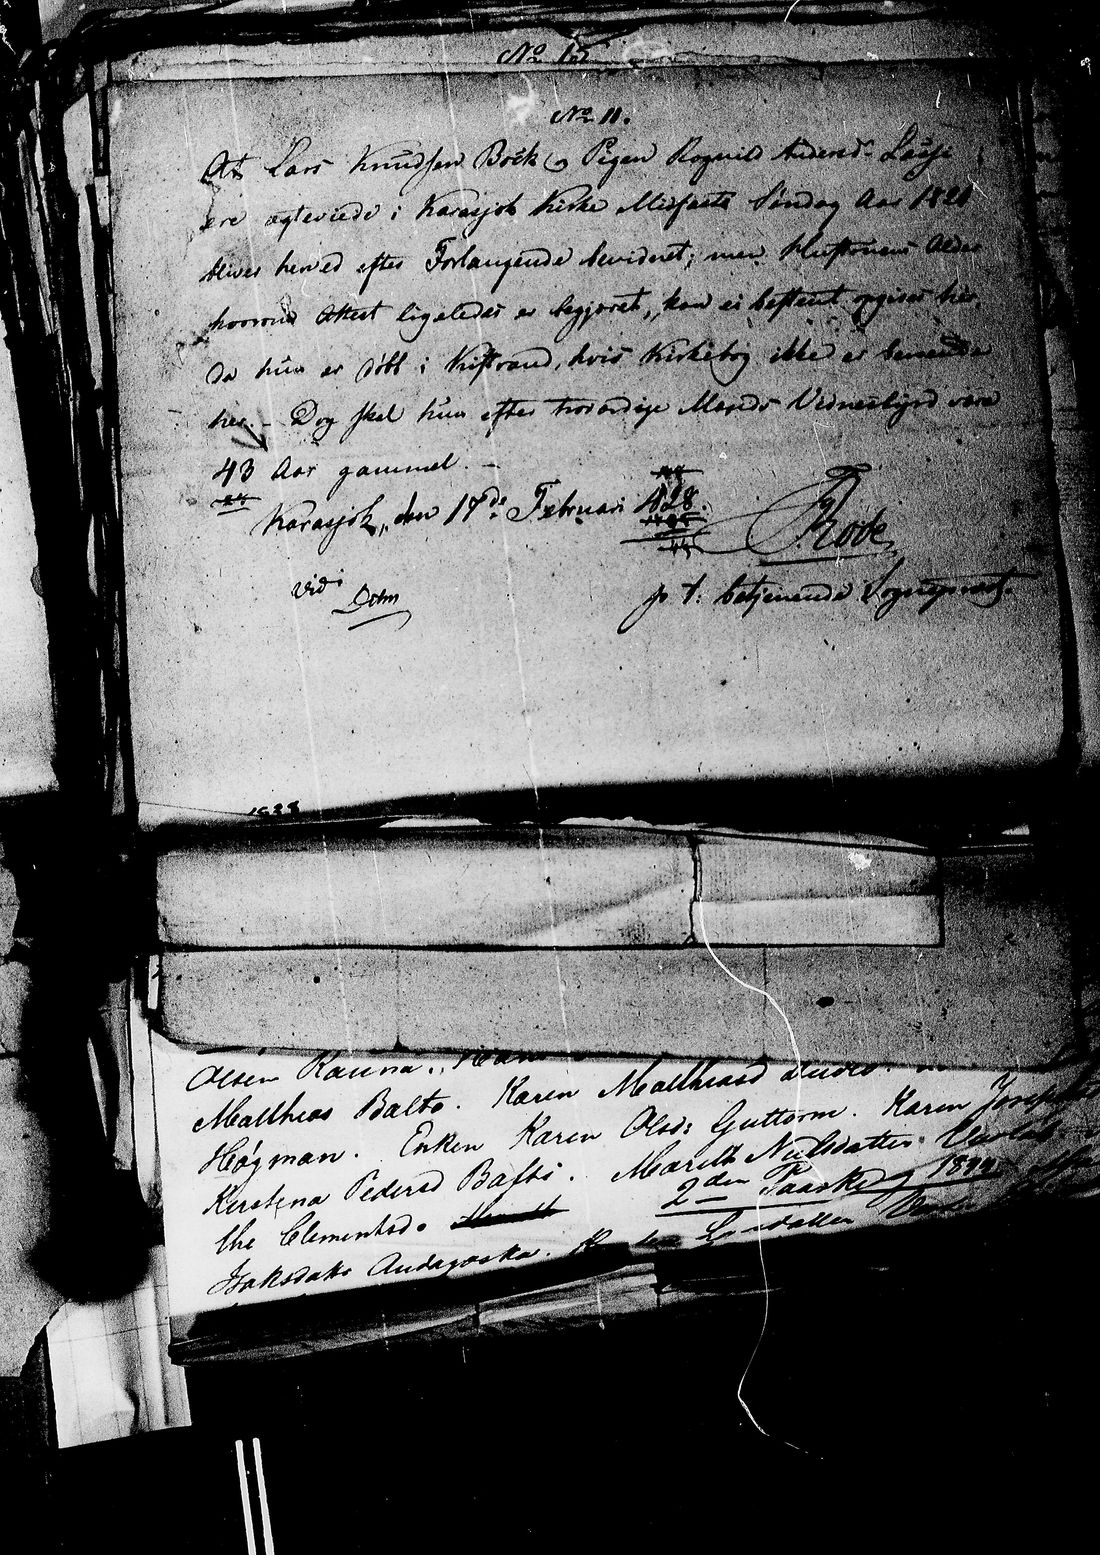 No 15
No 11.
At Lars Knudsen Boek og Pigen Rognild Andersd.
ere ægteviede i Karasjok Kirke Midfaste Søndag Aar 1821
blives herved efter Forlangende bevidnet; men Konens Alder
hvorom Attest ligeledes er begjæret, kan ei bestemt opgives her,
da hun er døbt i Kistrand, hvis Kirkebog ikke er
her. - Dog skal hun efter troværdige Mænds Vidnesbyrd være
43 Aar gammel. -
Karasjok, den 17de Februari 1828.
Rode
vidi
p. t. betjenende Sognepræst.
1828
Olsen Rauna.
Matthias Balto. Karen Matthiasd
Høgman. Enken Karen Olsd: Guttorm. Karen
Kerstena Pedersd Balto. Mareth Nielsdatter
2den Paaske
the Clementsd.
Isaksdatr